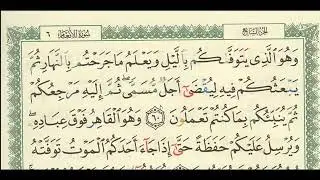 الجزء السابع
سورة الأنعام ٦
وَهُوَ ٱلَّذِى يَتَوَفَّىٰكُم بِٱلَّيْلِ وَيَعْلَمُ مَا جَرَحْتُم بِٱلنَّهَارِ ثُمَّ
يَبْعَثُكُمْ فِيهِ لِيُقْضَىٰٓ أَجَلٌ مُّسَمًّى ۖ ثُمَّ إِلَيْهِ مَرْجِعُكُمْ
ثُمَّ يُنَبِّئُكُم بِمَا كُنتُمْ تَعْمَلُونَ ٦٠ وَهُوَ ٱلْقَاهِرُ فَوْقَ عِبَادِهِۦ ۖ
وَيُرْسِلُ عَلَيْكُمْ حَفَظَةً حَتَّىٰٓ إِذَا جَآءَ أَحَدَكُمُ ٱلْمَوْتُ تَوَفَّتْهُ